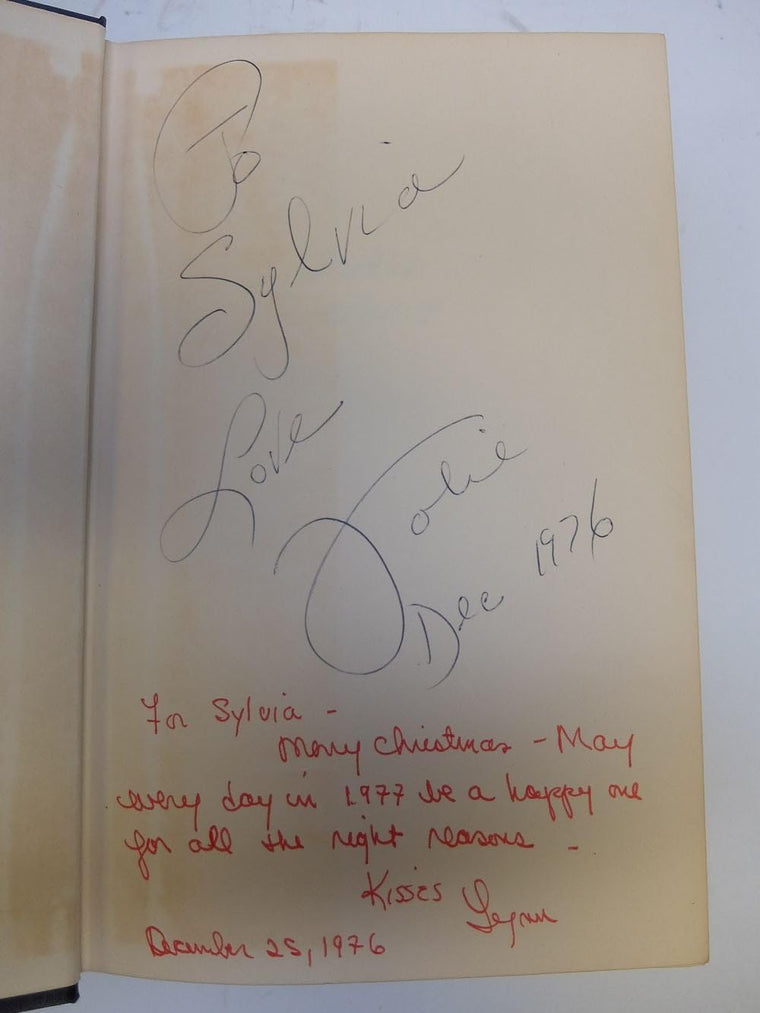 To
Sylvia
Love
Jolie
Dec 1976
For Sylvia -
Merry Christmas - May
every day in 1977 be a happy one
for all the right reasons -
Kisses Lynn
December 25, 1976